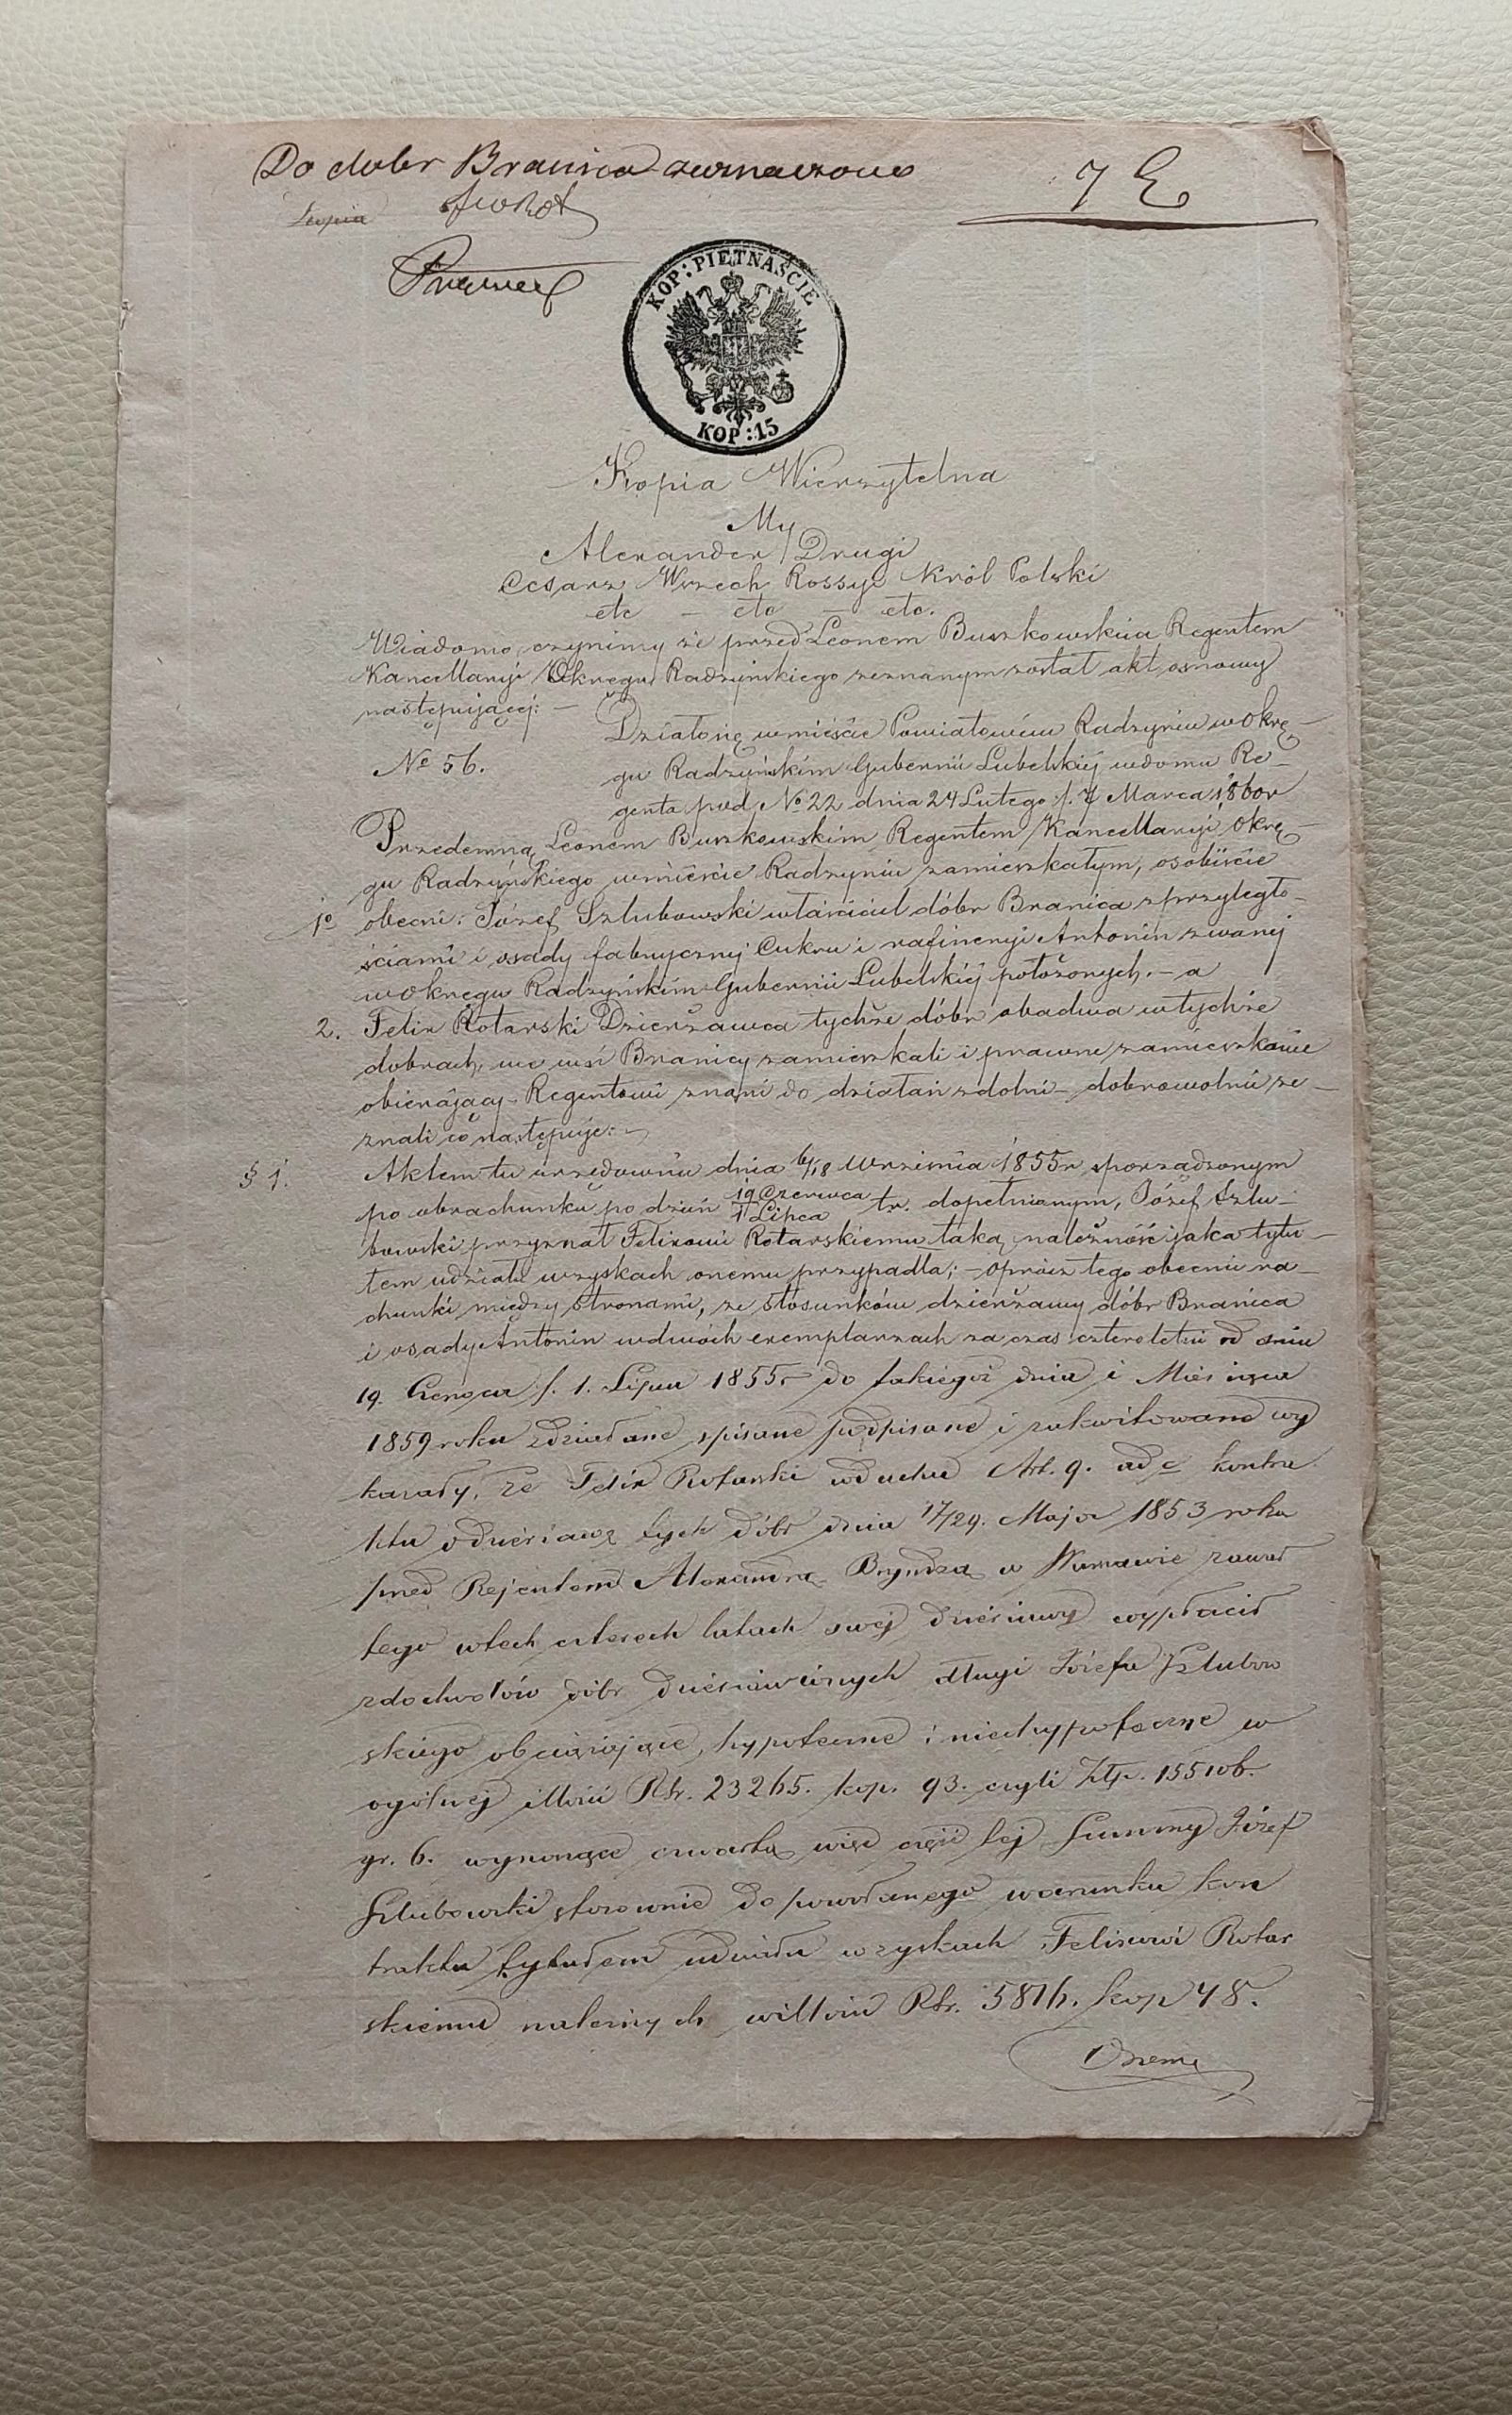 Do dobr Branica
7 E
KOP: PIĘTNAŚCIE
KOP: 15
Kopia Wierzytelna
My
Alexander Drugi
Cesarz Wszech Rossyi Król Polski
etc – etc – etc.
Wiadomo czynimy że przed Leonem Buszkowskim Regentem
Kancellaryi Okręgu Radzyńskiego zeznanym został akt osnowy
następującej: –
Działo się w mieście Powiatowém Radzyniu w Okrę–
№ 56.
gu Radzyńskim Gubernii Lubelskiéj w domu Re–
genta pod № 22 dnia 24 Lutego /. 7 Marca 1860 r
Przedemną Leonem Buszkowskim Regentem Kancellaryi Okrę–
gu Radzyńskiego w mieście Radzyniu zamieszkałym, osobiście
1º obecni: Józef Szlubowski właściciel dóbr Branica z przyległo–
ściami i osady fabrycznej Cukru i rafineryi Antonin zwanej
w Okręgu Radzyńskim Gubernii Lubelskiéj położonych. – a
2. Felix Rotarski Dzierżawca tychże dóbr obadwa w tychże
dobrach, we wsi Branicy zamieszkali i prawne zamieszkanie
obierający Regentowi znani do działań zdolni – dobrowolnie ze–
znali co następuje: –
§ 1. Aktem tu urzędownie dnia 6/18 Września 1855 r sporządzonym
po obrachunku po dzień 19 Czerwca / 1 Lipca t.r. dopełnionym, Józef Szlu–
bowski przyznał Felixowi Rotarskiemu taką należność jaka tytu–
łem udziału w zyskach onemu przypadła; – oprócz tego obecnie ra–
chunki między stronami, ze stosunków dzierżawy dóbr Branica
i osady Antonin w dwóch exemplarzach za czas czteroletni od dnia
19. Czerwca /. 1. Lipca 1855 r do takiegoż dnia i Miesiąca
1859 roku zdziałane spisane podpisane i zakwitowane wy
kazały, że Felix Rotarski w duchu Art. 9. ad c kontra
ktu o dzierżawę tych dóbr dnia 17/29. Maja 1853 roku
przed Rejentem Alexandrą Bryndzą w Warszawie zawar
tego w tych czterech latach swej dzierżawy wypłacił
z dochodów dóbr dzierżawionych długi Józefa Szlubow
skiego obciążające, hypoteczne i niehypoteczne w
ogólnej illości Rsr. 23265. kop. 93. czyli Złp. 155106.
gr. 6. wynoszące czwartą więc część tej Summy Józef
Szlubowski stosownie do powołanego warunku kon
traktu tytułem udziału w zyskach Felixowi Rotar
skiemu należnych w illości Rsr. 5816. kop 48.